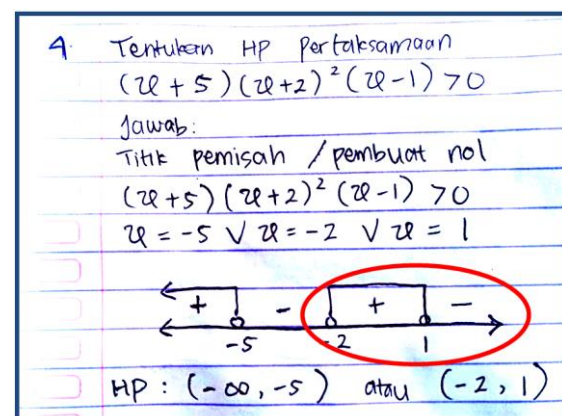 4. Tentukan HP Pertaksamaan
(x + 5) (x+2)² (x-1) >0
Jawab:
Titik pemisah / pembuat nol
(x+5) (x+2)² (x-1) >0
x = -5 V x = -2 V x = 1
+ - + -
-5 -2 1
HP : (-∞, -5) atau (-2, 1)